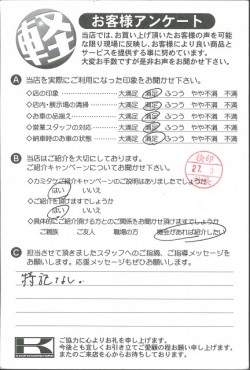 軽
お客様アンケート
当店では、お買い上げ頂いたお客様の声を可能
な限り現場に反映し、お客様により良い商品と
サービスを提供する事に努めています。
大変お手数ですが是非お声をお聞かせ下さい。
A 当店を実際にご利用になった印象をお聞かせ下さい。
◇店の印象 大満足 満足 ふつう やや不満 不満
◇店内・展示場の清掃 大満足 満足 ふつう やや不満 不満
◇お車の品揃え 大満足 満足 ふつう やや不満 不満
◇営業スタッフの対応 大満足 満足 ふつう やや不満 不満
◇納車時のお車の状態 大満足 満足 ふつう やや不満 不満
B 当店はご紹介を大切にしております。
ご紹介キャンペーンについてお聞かせ下さい。
◇カミタケご紹介キャンペーンのご説明はありましたでしょうか
はい いいえ
◇ご紹介を頂けますでしょうか
はい いいえ
◇具体的にご紹介頂ける方とのご関係をお聞かせ頂けますでしょうか
ご親族 ご友人 職場の方 機会があれば紹介したい
C 担当させて頂きましたスタッフへのご指摘、ご指導メッセージを
お願いします。応援メッセージもぜひお願いします。
特記なし。
K
ご協力に心よりお礼を申し上げます。
今後とも宜しくお引き立てご愛顧の程お願い申し上げます。
またのご来店を心からお待ちしております。